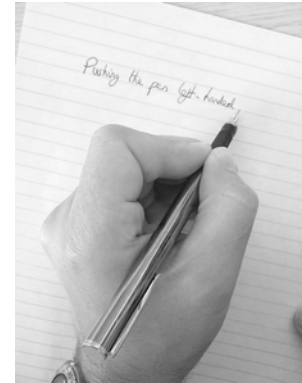 Pushing the pen left-handed